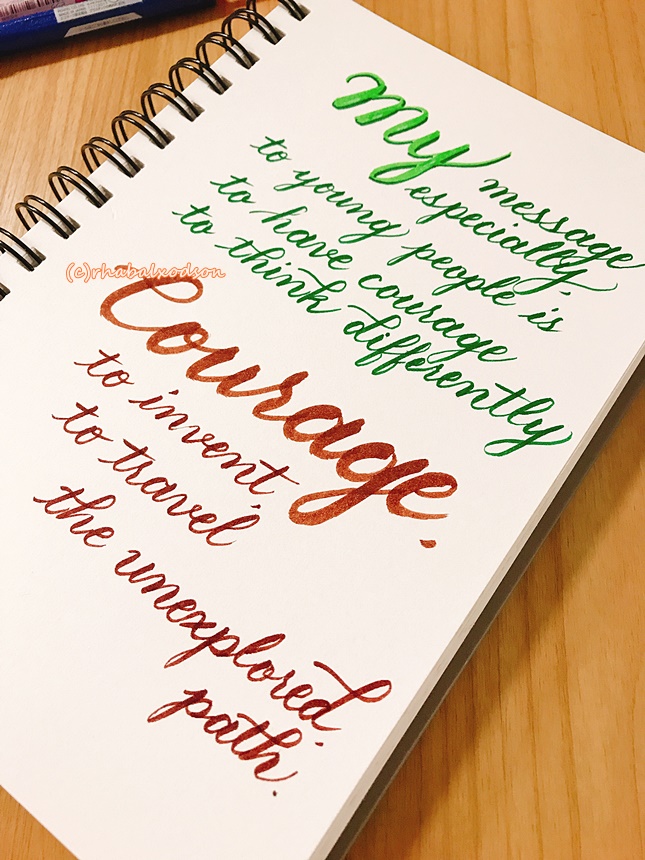 My message
especially
to young people is
to have courage
to think differently
(c)rhabalxodson
Courage.
to invent
to travel
the unexplored
path.